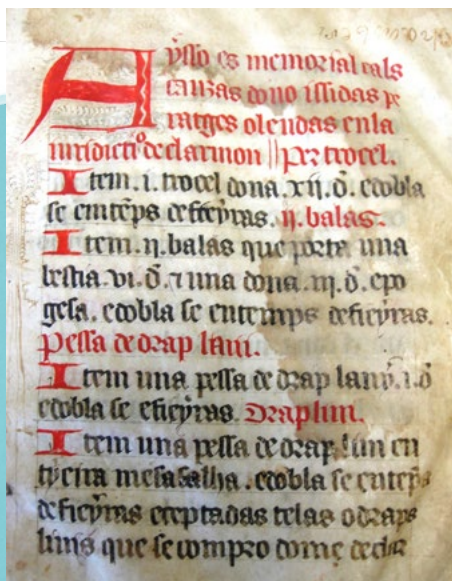 Aÿsso es memorial cals
causas dono issidas pe
atges o lendas en la
iuridictio de clarmon || per trocel.
Item .i. trocel dona .xij. đ. e dobla
se en tēps de fieÿras. ij. balas.
Item .ij. balas que porte una
bestia .vi. đ. ⁊ una dona .iij. đ. e po
gesa. e dobla se en temps de fieÿras.
Pessa de drap lani.
Item una pessa de drap laniÿ .i. đ
e dobla se e fieÿras. Drap lini.
Item una pessa de drap lini en
tÿeira mesalha. e dobla se en tēps
de fieÿras exeptadas telas o draps
linis que se compro